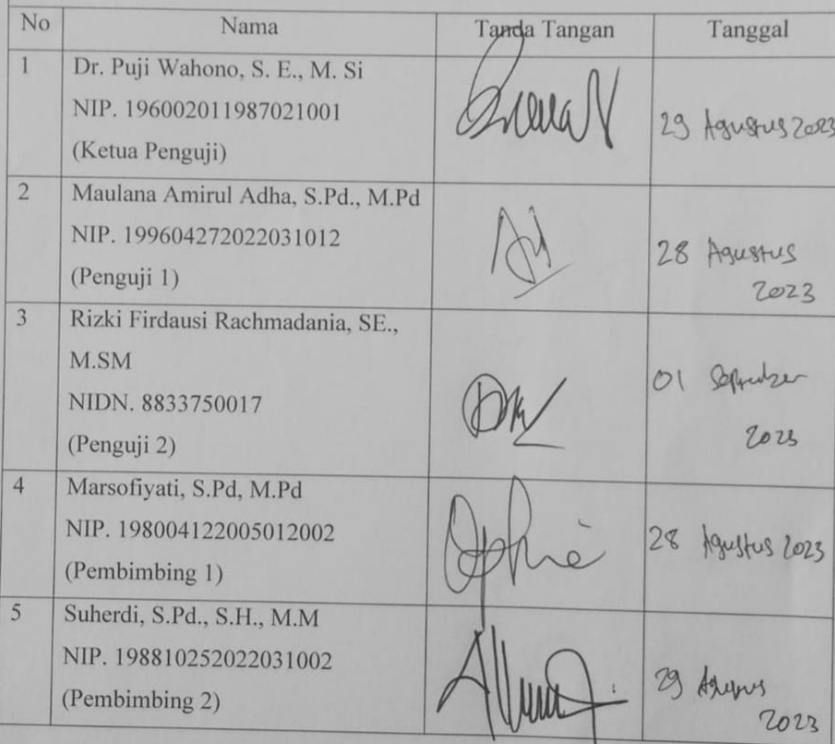 No Nama Tanda Tangan Tanggal
1 Dr. Puji Wahono, S. E., M. Si
NIP. 196002011987021001
(Ketua Penguji)
29 Agustus 2023
2 Maulana Amirul Adha, S.Pd., M.Pd
NIP. 199604272022031012
(Penguji 1)
28 Agustus
2023
3 Rizki Firdausi Rachmadania, SE.,
M.SM
NIDN. 8833750017
(Penguji 2)
01 September
2023
4 Marsofiyati, S.Pd, M.Pd
NIP. 198004122005012002
(Pembimbing 1)
28 Agustus 2023
5 Suherdi, S.Pd., S.H., M.M
NIP. 198810252022031002
(Pembimbing 2)
29 Agustus
2023